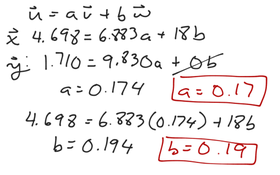 u⃗ = a v⃗ + b w⃗
x⃗ 4.698 = 6.883a + 18b
y⃗: 1.710 = 9.830a + 0b
a = 0.174 a = 0.17
4.698 = 6.883(0.174) + 18b
b = 0.194 b = 0.19